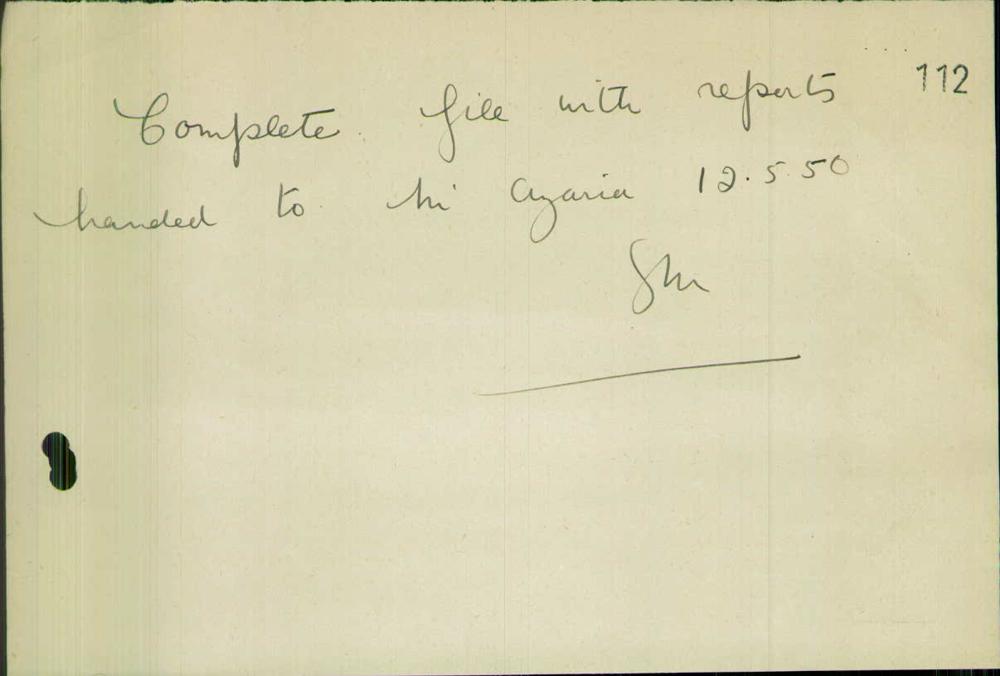 112
Complete file with reports
handed to Mr Azaria 12.5.50